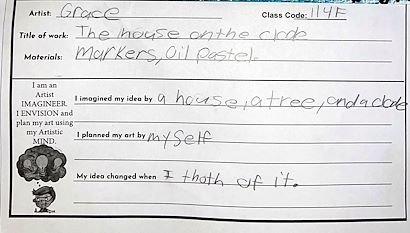 Artist: Grace Class Code: 114F
Title of work: The house on the clode
Materials: Markers, Oil Pastel.
I am an
Artist
IMAGINEER.
I ENVISION and
plan my art using
my Artistic
MIND.
I imagined my idea by a house, a tree, and a clode
I planned my art by myself
My idea changed when I thoth of it.